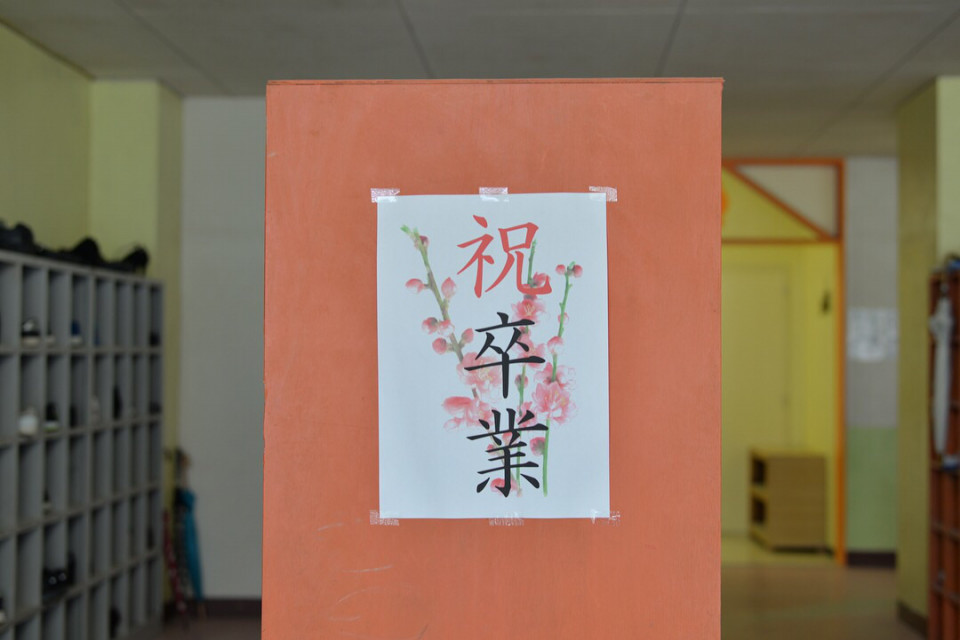 祝卒業